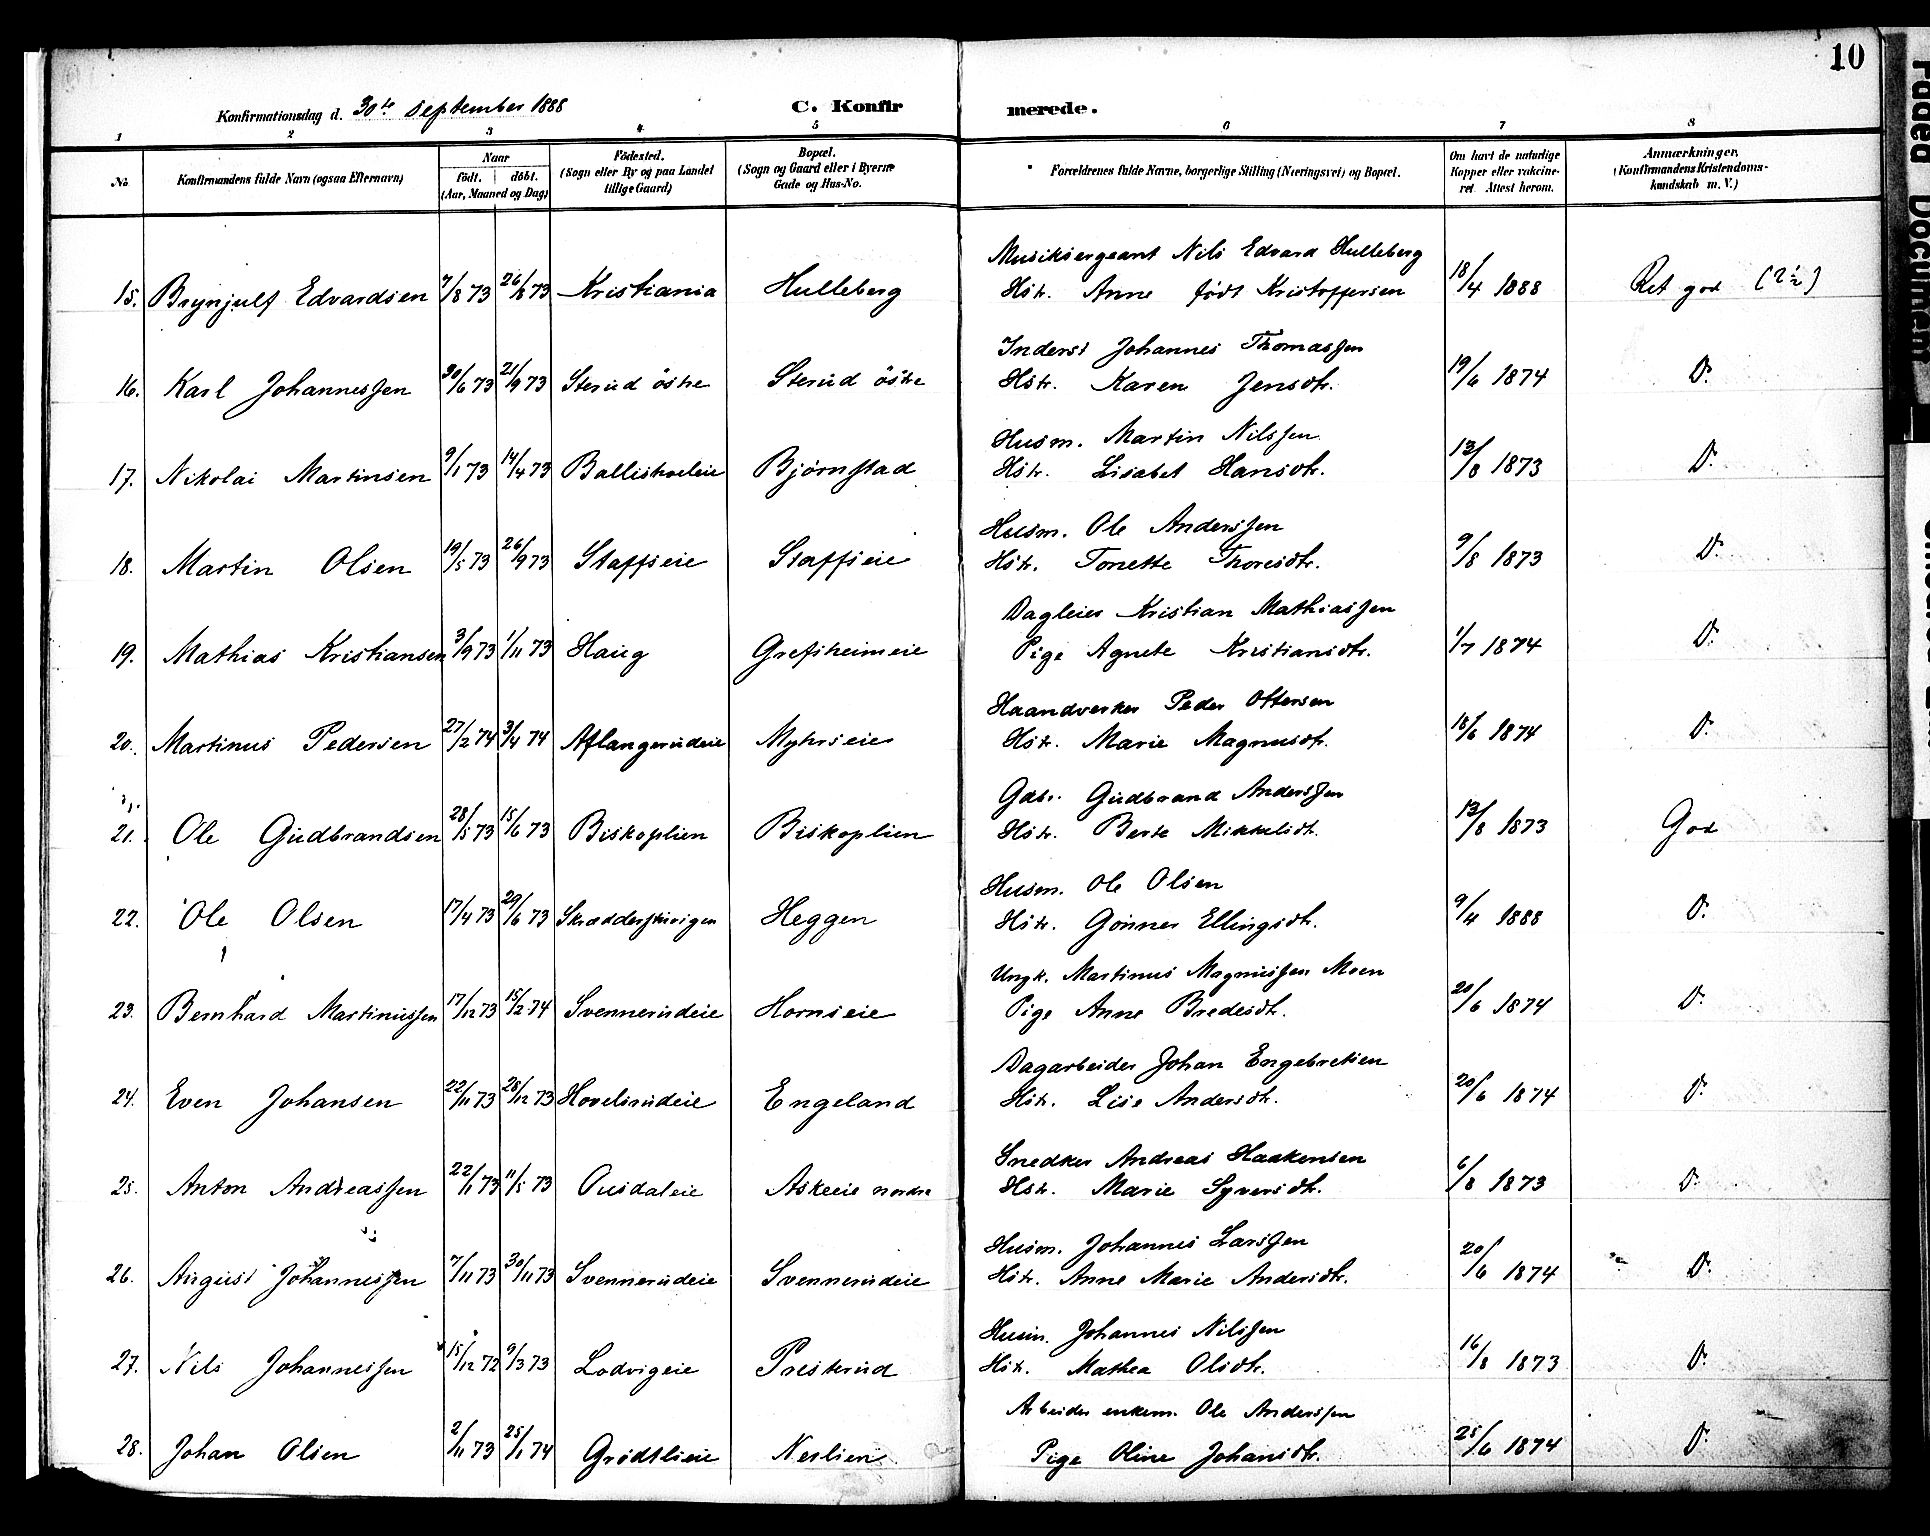 10
Konfirmationsdag d. 30te September 1888
C. Konfirmerede.
1 2 3 4 5 6 7 8
No. Konfirmandens fulde Navn (ogsaa Efternavn) Naar født. døbt. (Aar, Maaned og Dag) Fødested. (Sogn eller By og paa Landet tillige Gaard) Bopæl. (Sogn og Gaard eller i Byerne Gade og Hus-No. Forældrenes fulde Navne, borgerlige Stilling (Næringsvei) og Bopæl. Om havt de naturlige Kopper eller vakcineret Attest herom. Anmærkninger, (Konfirmandens Kristendomskundskab m. V.)
Musiksergeant Nils Edvard Hulleberg
15. Brynjulf Edvardsen 7/8 73 26/8 73 Kristiania Hulleberg Hstr. Anne født Kristoffersen 18/4 1888 Ret god (2½)
Inderst Johannes Thomassen
16. Karl Johannessen 30/6 73 21/9 73 Sterud östre Sterud östre Hstr. Karen Jensdtr. 19/6 1874 Do
Husm. Martin Nilssen
17. Nikolai Martinsen 9/1 73 14/4 73 Ballisholeie Bjørnstad Hstr. Lisabet Hansdtr. 13/8 1873 Do
Husm. Ole Anderssen
18. Martin Olsen 19/5 73 26/9 73 Staffseie Staffseie Hstr. Tonette Thoresdtr. 9/8 1873 Do
Dagleier Kristian Mathiassen
19. Mathias Kristiansen 3/9 73 1/11 73 Haug Grefsheimeie Pige Agnete Kristiansdtr. 1/7 1874 Do
Haandverker Peder Ottersen
20. Martinus Pedersen 27/2 74 3/4 74 Aflangerudeie Myhrseie Hstr. Marie Magnusdtr. 18/6 1874 Do
Gdbr. Gudbrand Anderssen
21. Ole Gudbrandsen 28/5 73 15/6 73 Biskoplien Biskoplien Hstr. Berte Mikkelsdtr. 13/8 1873 God
Husm. Ole Olsen
22. Ole Olsen 17/4 73 29/6 73 Heggen Hstr. Gønner Ellingsdtr. 9/4 1888 Do
Ungk. Martinus Magnussen Moen
23. Bernhard Martinussen 17/12 73 15/2 74 Svennerudeie Hornseie Pige Anne Bredesdtr. 20/6 1874 Do
Dagarbeider Johan Engebretsen
24. Even Johansen 22/11 73 28/12 73 Hovelsrudeie Engeland Hstr. Lise Andersdtr. 20/6 1874 Do
Snedker Andreas Haakensen
25. Anton Andreassen 22/1 73 11/5 73 Ousdaleie Askeeie nordre Hstr. Marie Syversdtr. 6/8 1873 Do
Husm. Johannes Larssen
26. August Johannessen 7/11 73 30/11 73 Svennerudeie Svennerudeie Hstr. Anne Marie Andersdtr. 20/6 1874 Do
Husm. Johannes Nilssen
27. Nils Johannessen 15/12 72 9/3 73 Lodvigeie Presterud Hstr. Mathea Olsdtr. 16/8 1873 Do
Arbeider enkem. Ole Anderssen
28. Johan Olsen 2/11 73 25/1 74 Grödtlieie Neslien Pige Oline Johansdtr. 25/6 1874 Do
Faded Document